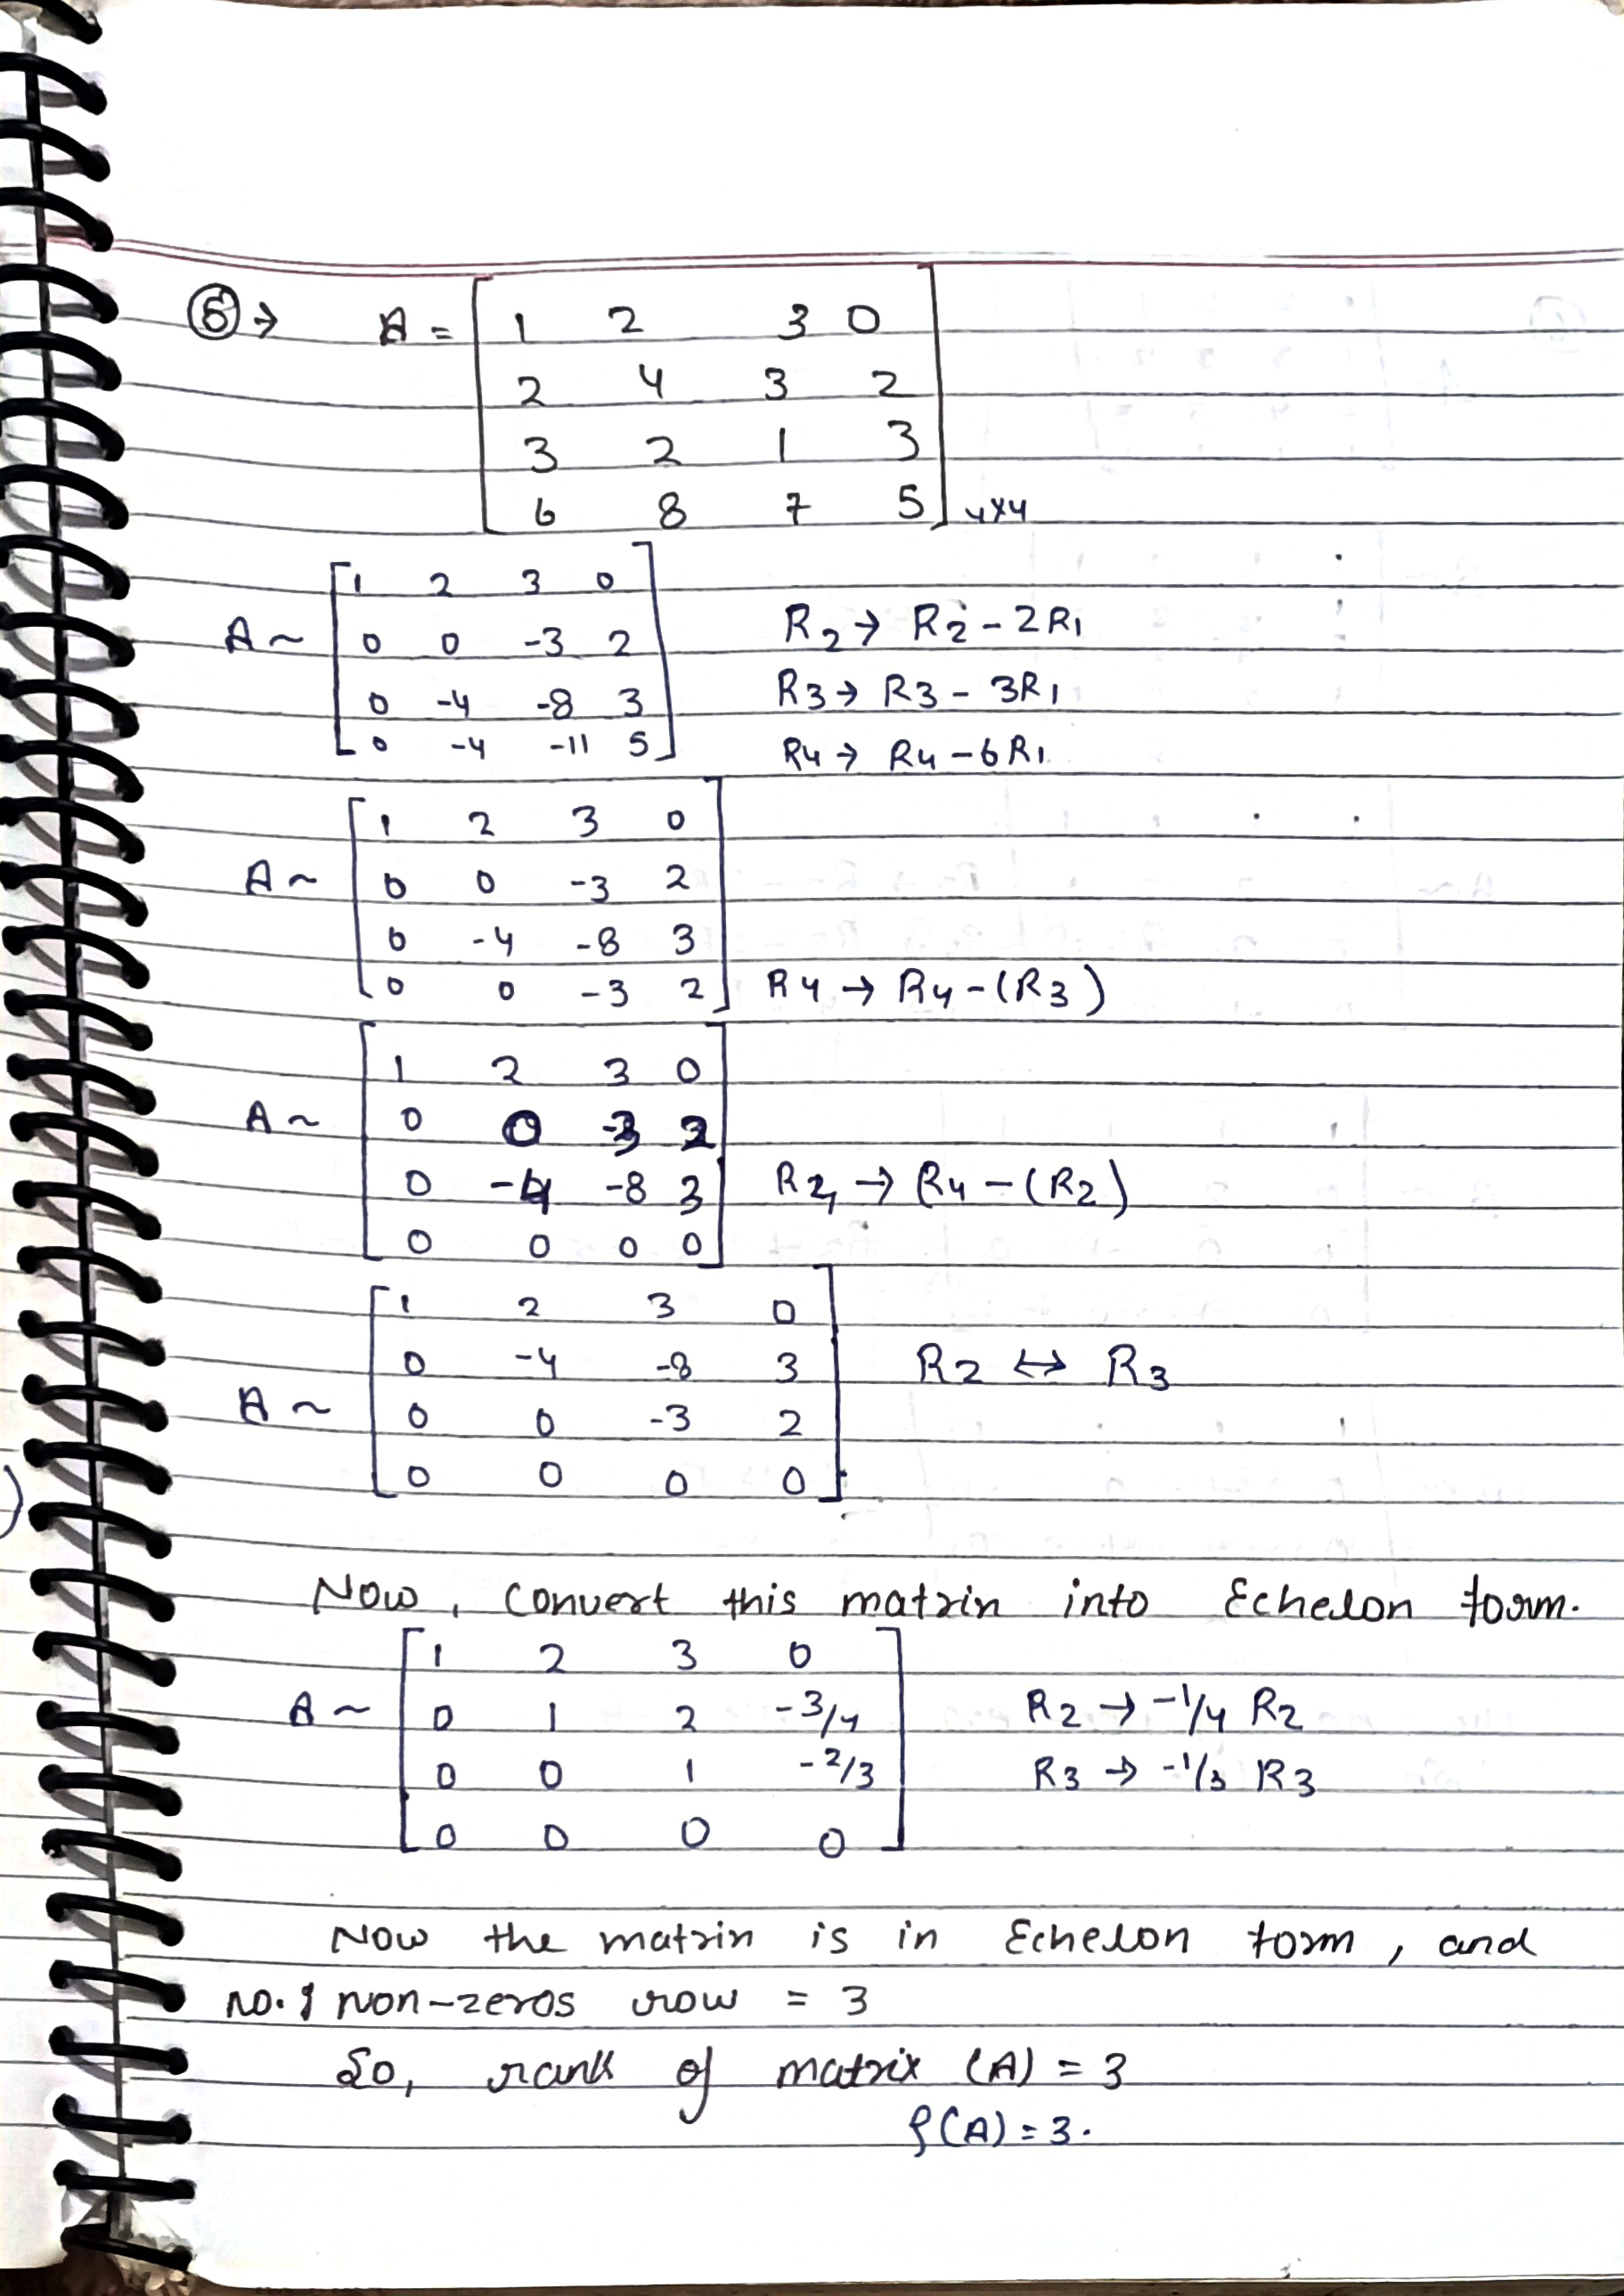 ⑥→ A = [ 1 2 3 0
2 4 3 2
3 2 1 3
6 8 7 5 ] 4×4
A ~ [ 1 2 3 0
0 0 -3 2 R2 → R2 - 2R1
0 -4 -8 3 R3 → R3 - 3R1
0 -4 -11 5 ] R4 → R4 - 6R1
A ~ [ 1 2 3 0
0 0 -3 2
0 -4 -8 3
0 0 -3 2 ] R4 → R4 - (R3)
A ~ [ 1 2 3 0
0 0 -3 2
0 -4 -8 3 R4 → R4 - (R2)
0 0 0 0 ]
A ~ [ 1 2 3 0
0 -4 -8 3 R2 ↔ R3
0 0 -3 2
0 0 0 0 ]
Now, convert this matrix into Echelon form.
A ~ [ 1 2 3 0
0 1 2 -3/4 R2 → -1/4 R2
0 0 1 -2/3 R3 → -1/3 R3
0 0 0 0 ]
Now the matrix is in Echelon form, and
no. of non-zeros row = 3
So, rank of matrix (A) = 3
ρ(A) = 3.